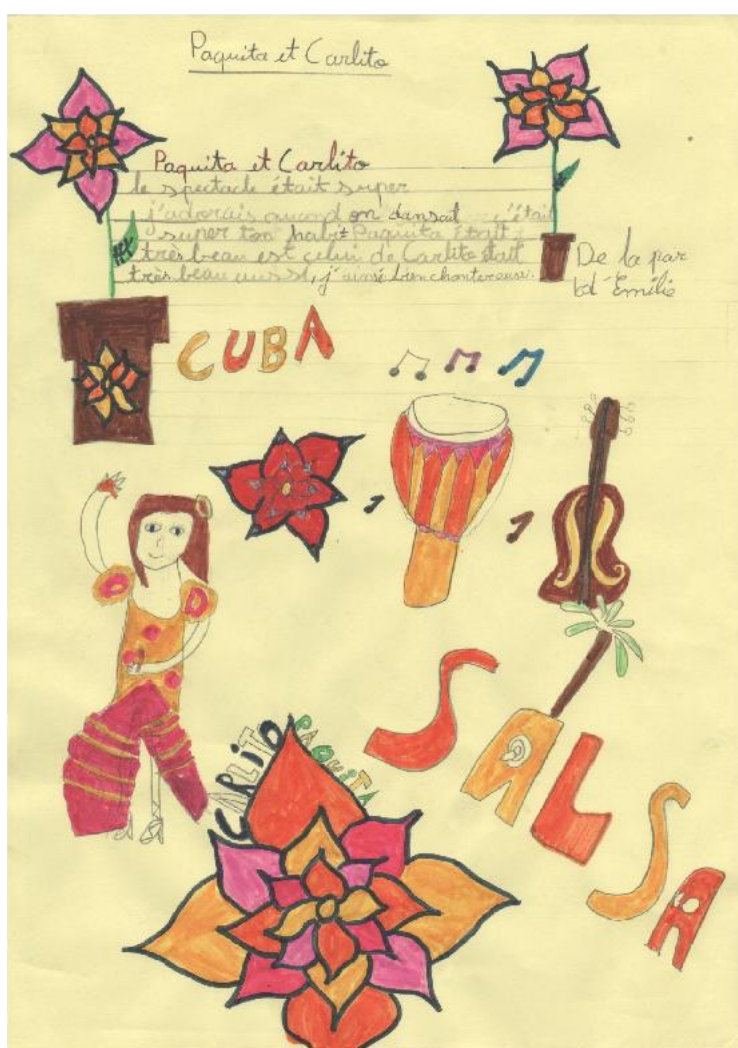 Paquita et Carlito
Paquita et Carlito
le spectacle était super
j'adorais quand on dansait c'était
super ton habit Paquita était
très beau est celui de Carlito était
très beau aussi, j'aimé bien chanter
De la par
d'Emilie
CUBA
CARLITO PAQUITA
SALSA